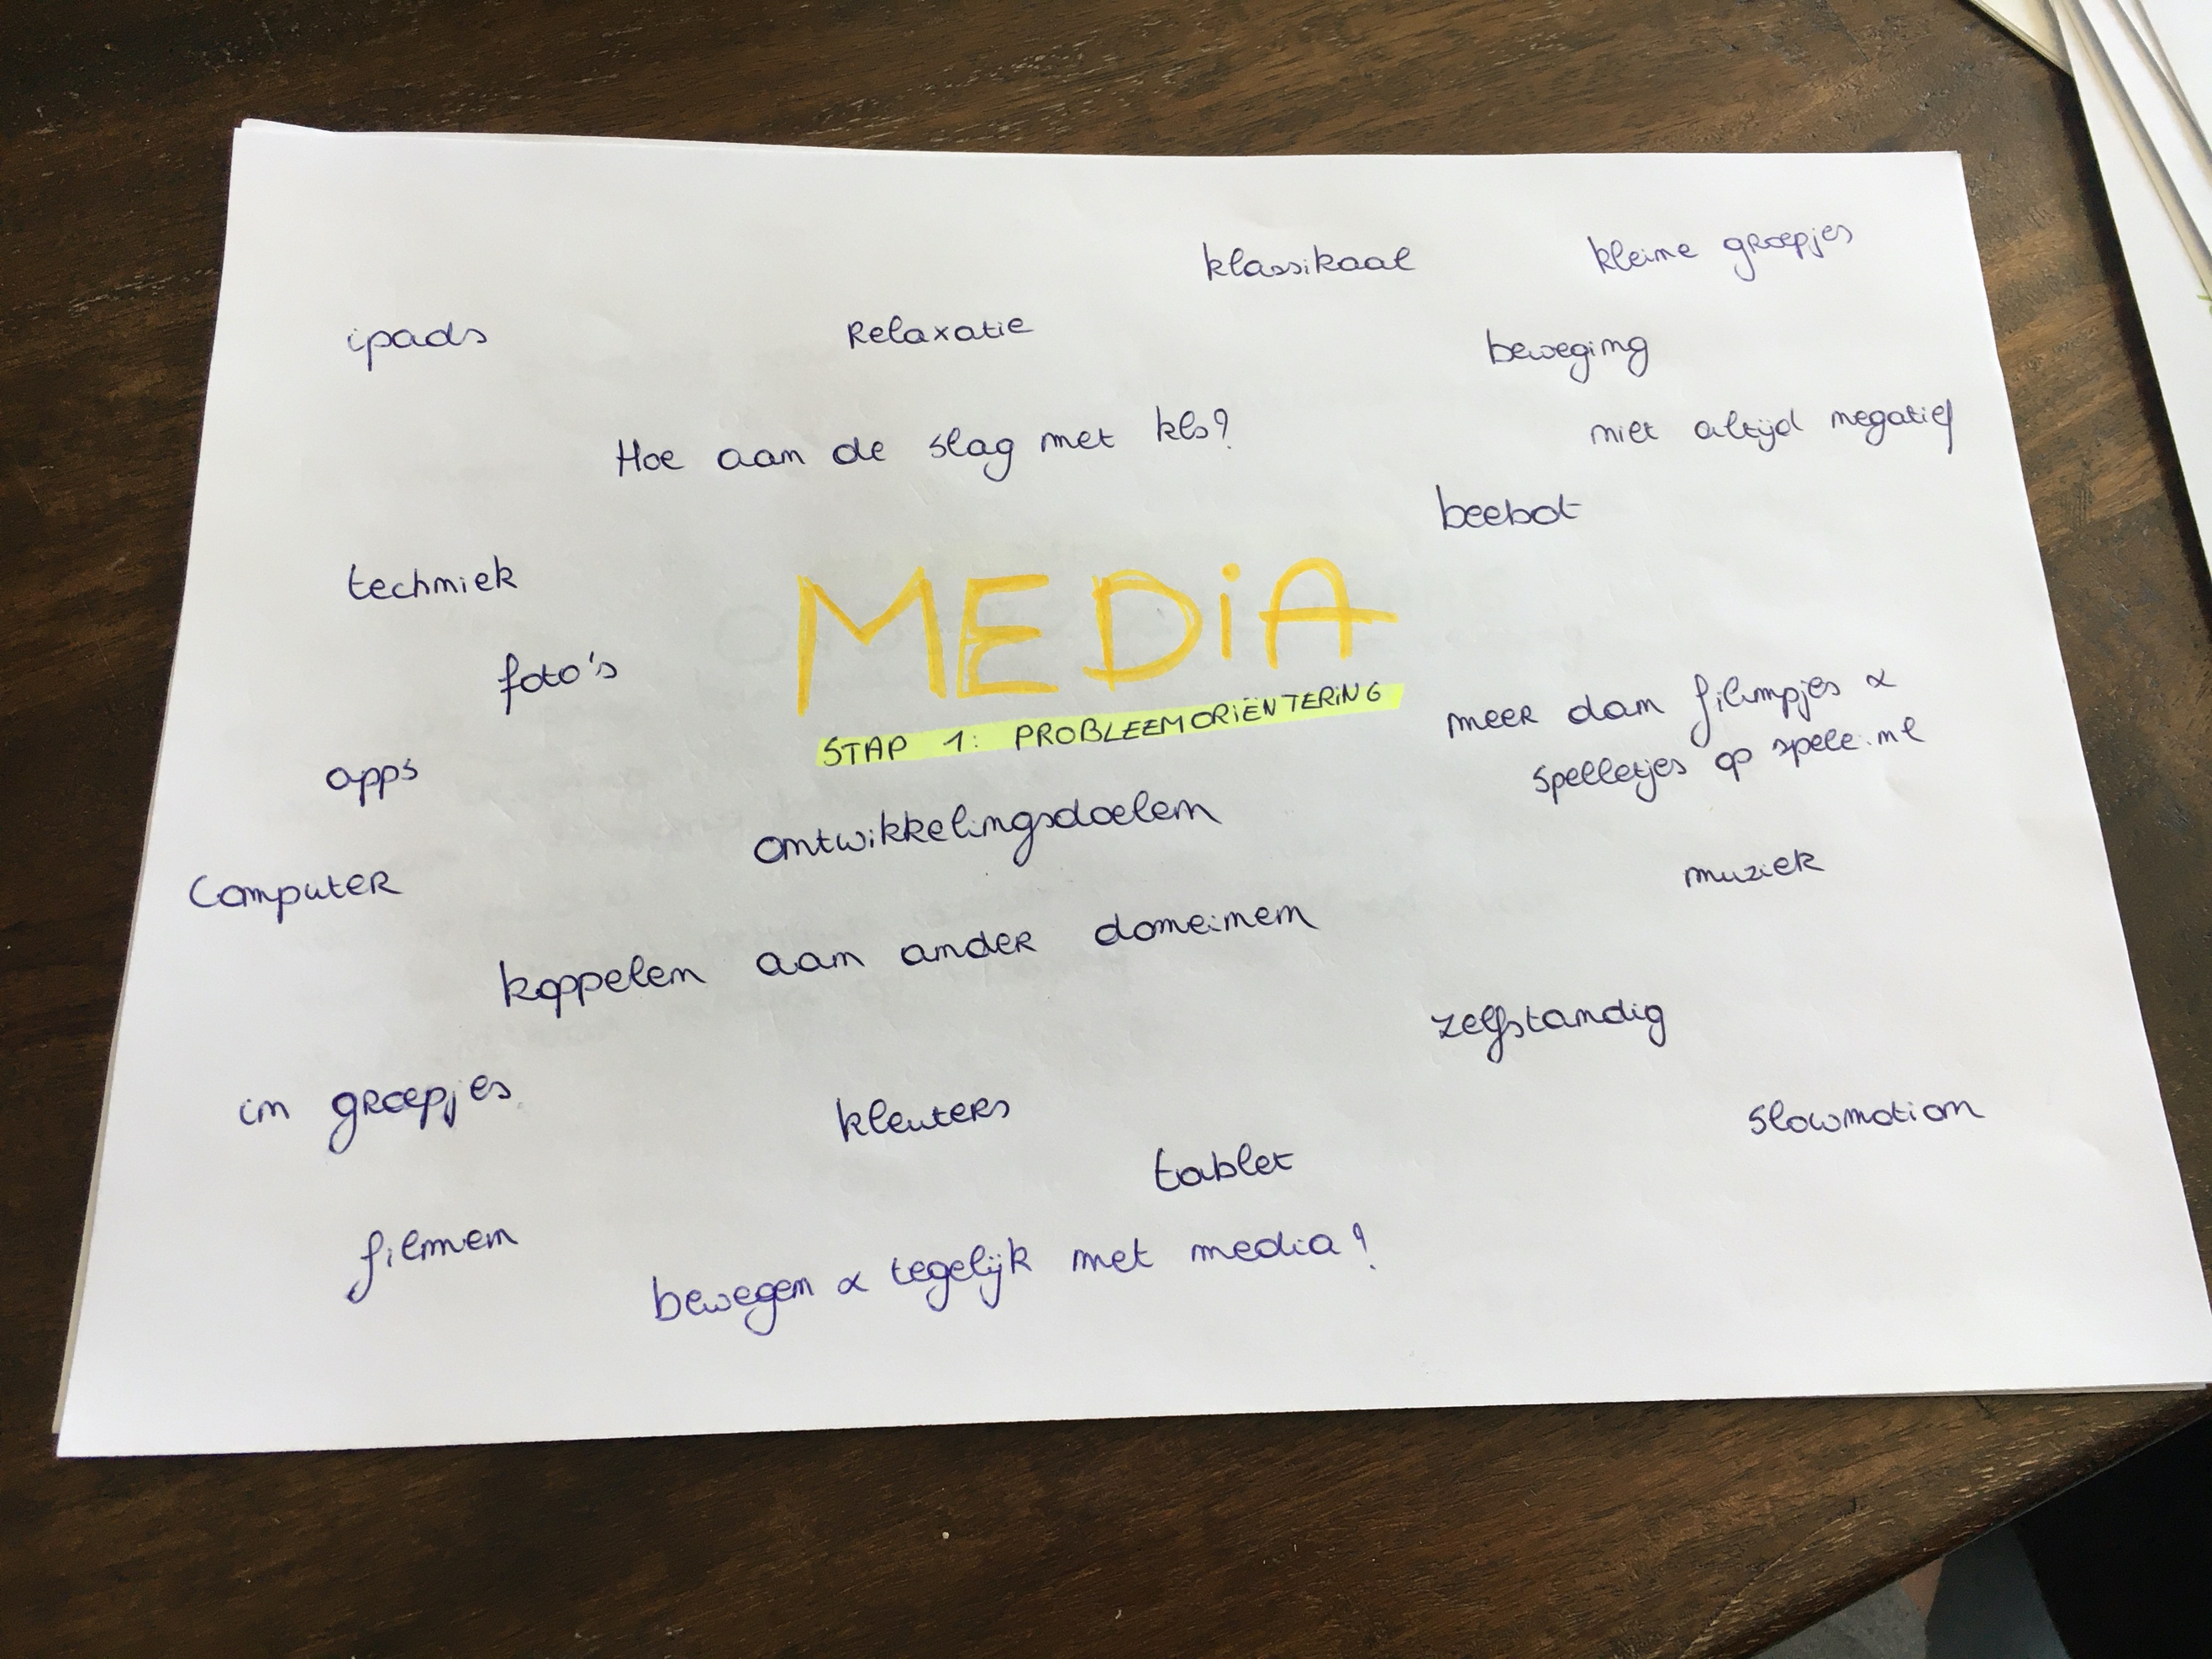 klassikaal
kleine groepjes
ipads
Relaxatie
beweging
Hoe aan de slag met kls?
niet altijd negatief
beebot
techniek
MEDiA
foto's
STAP 1: PROBLEEMORIËNTERING
meer dan filmpjes &
spelletjes op spele.nl
apps
ontwikkelingsdoelen
Computer
muziek
koppelen aan ander domeinen
zelfstandig
in groepjes
kleuters
slowmotion
tablet
filmen
bewegen & tegelijk met media?